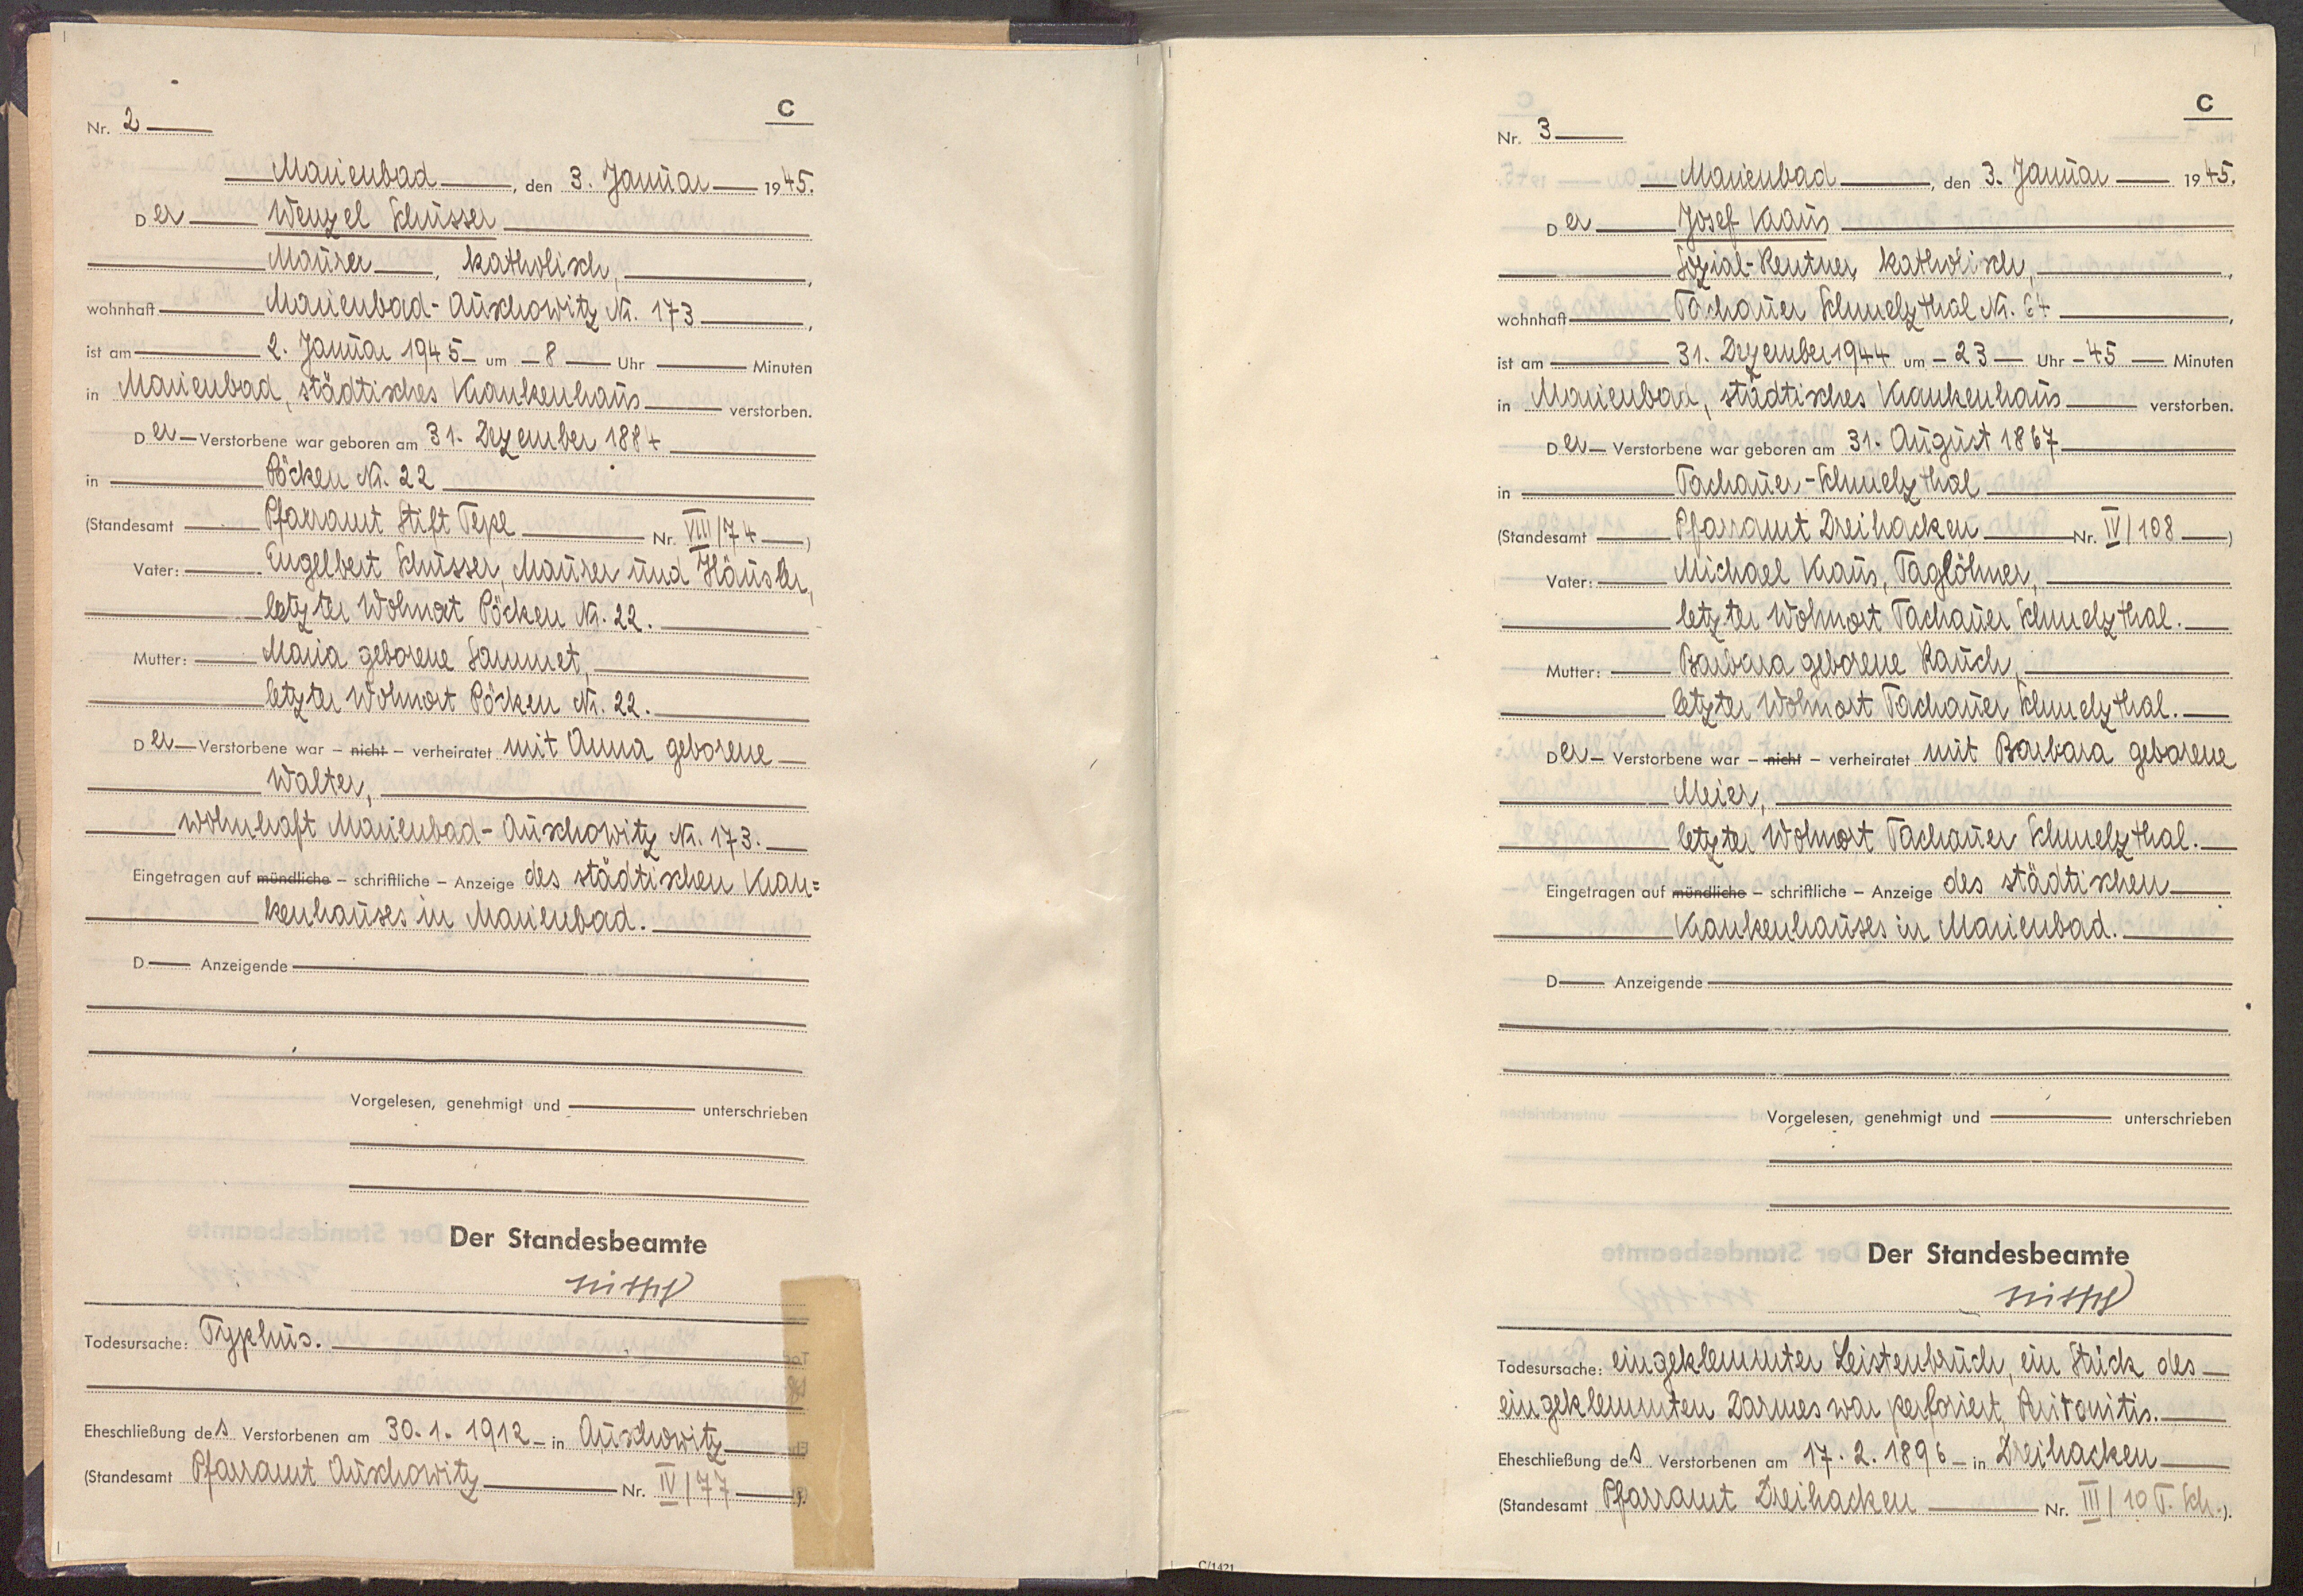 C
Nr. 2
Marienbad, den 3. Januar 1945.
Der Wenzel Schusser
Maurer, katholisch,
wohnhaft Marienbad-Auschowitz Nr. 173,
ist am 2. Januar 1945 um 8 Uhr Minuten
in Marienbad, städtisches Krankenhaus verstorben.
Der Verstorbene war geboren am 31. Dezember 1884
in Pöcken Nr. 22
(Standesamt Pfarramt Stift Tepl Nr. VIII/74)
Vater: Engelbert Schusser, Maurer und Häusler,
letzter Wohnort Pöcken Nr. 22.
Mutter: Maria geborene Sammet,
letzter Wohnort Pöcken Nr. 22.
Der Verstorbene war – nicht – verheiratet mit Anna geborene
Walter,
wohnhaft Marienbad-Auschowitz Nr. 173.
Eingetragen auf mündliche – schriftliche – Anzeige des städtischen Kran=
kenhauses in Marienbad.
D Anzeigende
Vorgelesen, genehmigt und unterschrieben
Der Standesbeamte
Todesursache: Typhus.
Eheschließung des Verstorbenen am 30.1.1912 in Auschowitz
(Standesamt Pfarramt Auschowitz Nr. IV/77).
C
Nr. 3
Marienbad, den 3. Januar 1945.
Der Josef Kraus
Sozial-Rentner, katholisch,
wohnhaft Tachauer Schmelzthal Nr. 64,
ist am 31. Dezember 1944 um 23 Uhr 45 Minuten
in Marienbad, städtisches Krankenhaus verstorben.
Der Verstorbene war geboren am 31. August 1867
in Tachauer-Schmelzthal
(Standesamt Pfarramt Dreihacken Nr. IV/108)
Vater: Michael Kraus, Taglöhner,
letzter Wohnort Tachauer Schmelzthal.
Mutter: Barbara geborene Rauch,
letzter Wohnort Tachauer Schmelzthal.
Der Verstorbene war – nicht – verheiratet mit Barbara geborene
Meier,
letzter Wohnort Tachauer Schmelzthal.
Eingetragen auf mündliche – schriftliche – Anzeige des städtischen
Krankenhauses in Marienbad.
D Anzeigende
Vorgelesen, genehmigt und unterschrieben
Der Standesbeamte
Todesursache: eingeklemmter Leistenbruch, ein Stück des
eingeklemmten Darmes war perforiert, Peritonitis.
Eheschließung des Verstorbenen am 17.2.1896 in Dreihacken
(Standesamt Pfarramt Dreihacken Nr. III/10 T. Sch.).
C/1421